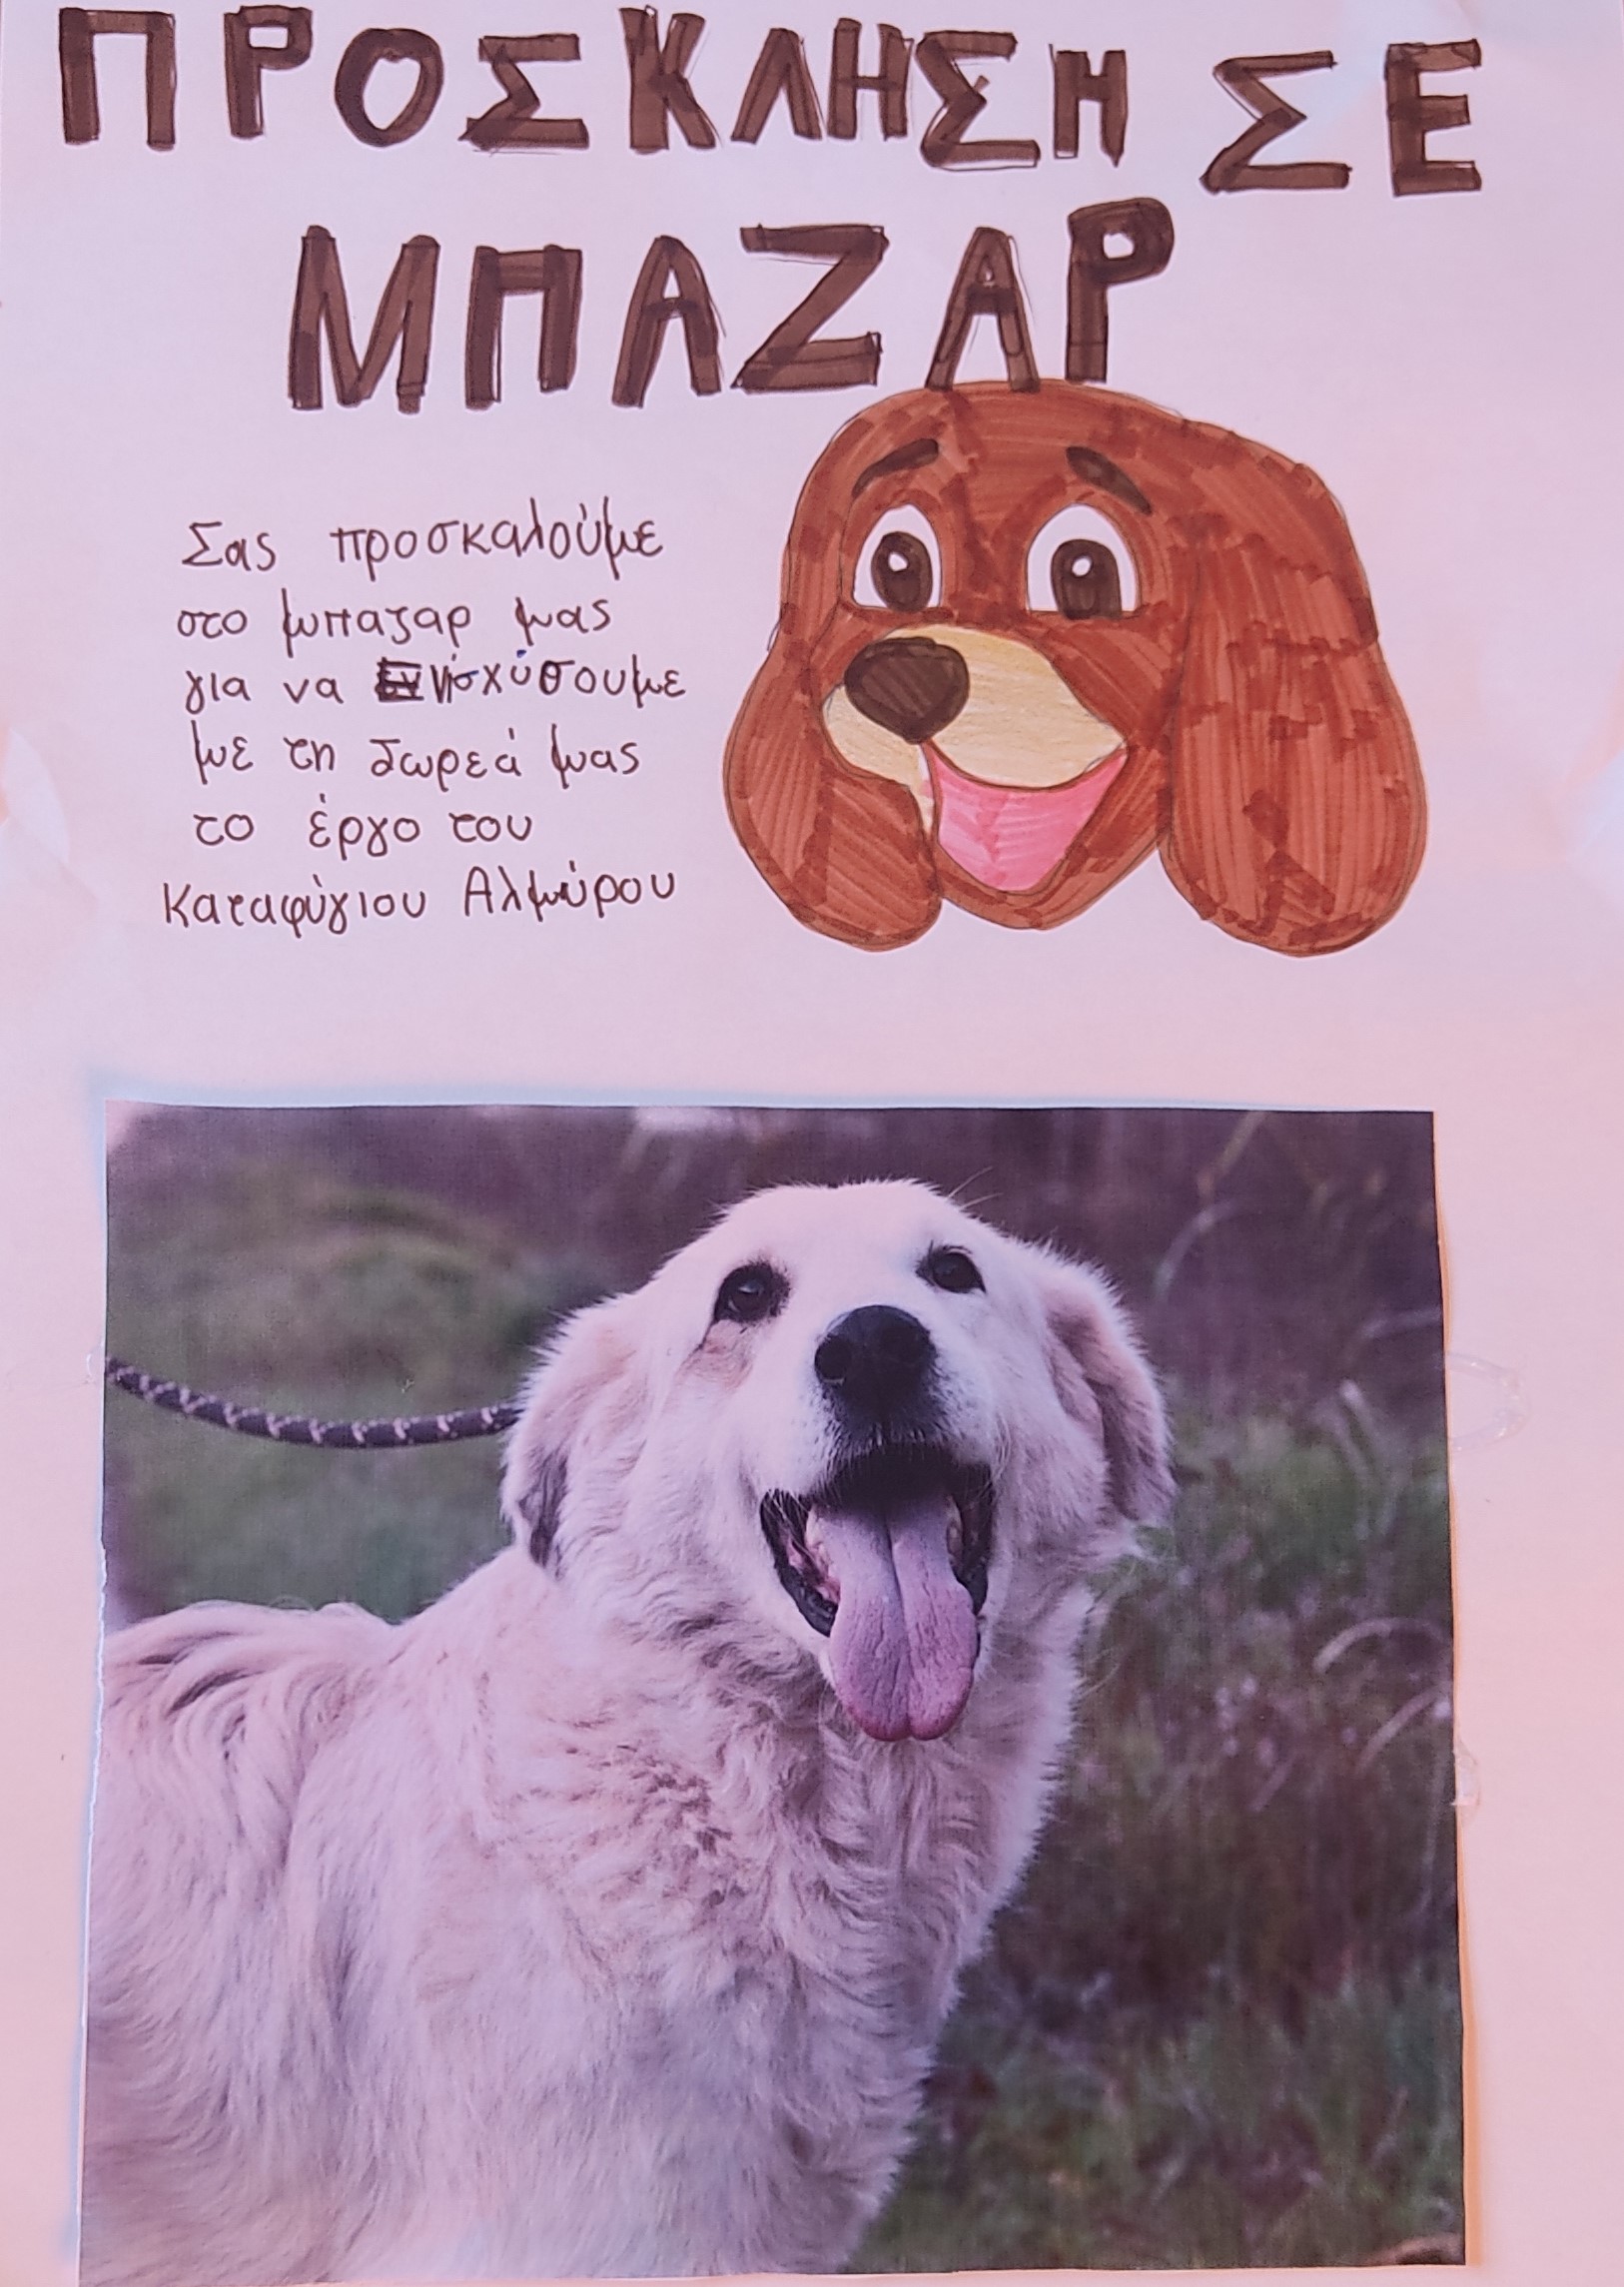 ΠΡΟΣΚΛΗΣΗ ΣΕ
ΜΠΑΖΑΡ
Σας προσκαλούμε
στο μπαζαρ μας
για να ενισχύσουμε
με τη δωρεά μας
το έργο του
Καταφύγιου Αλμύρου